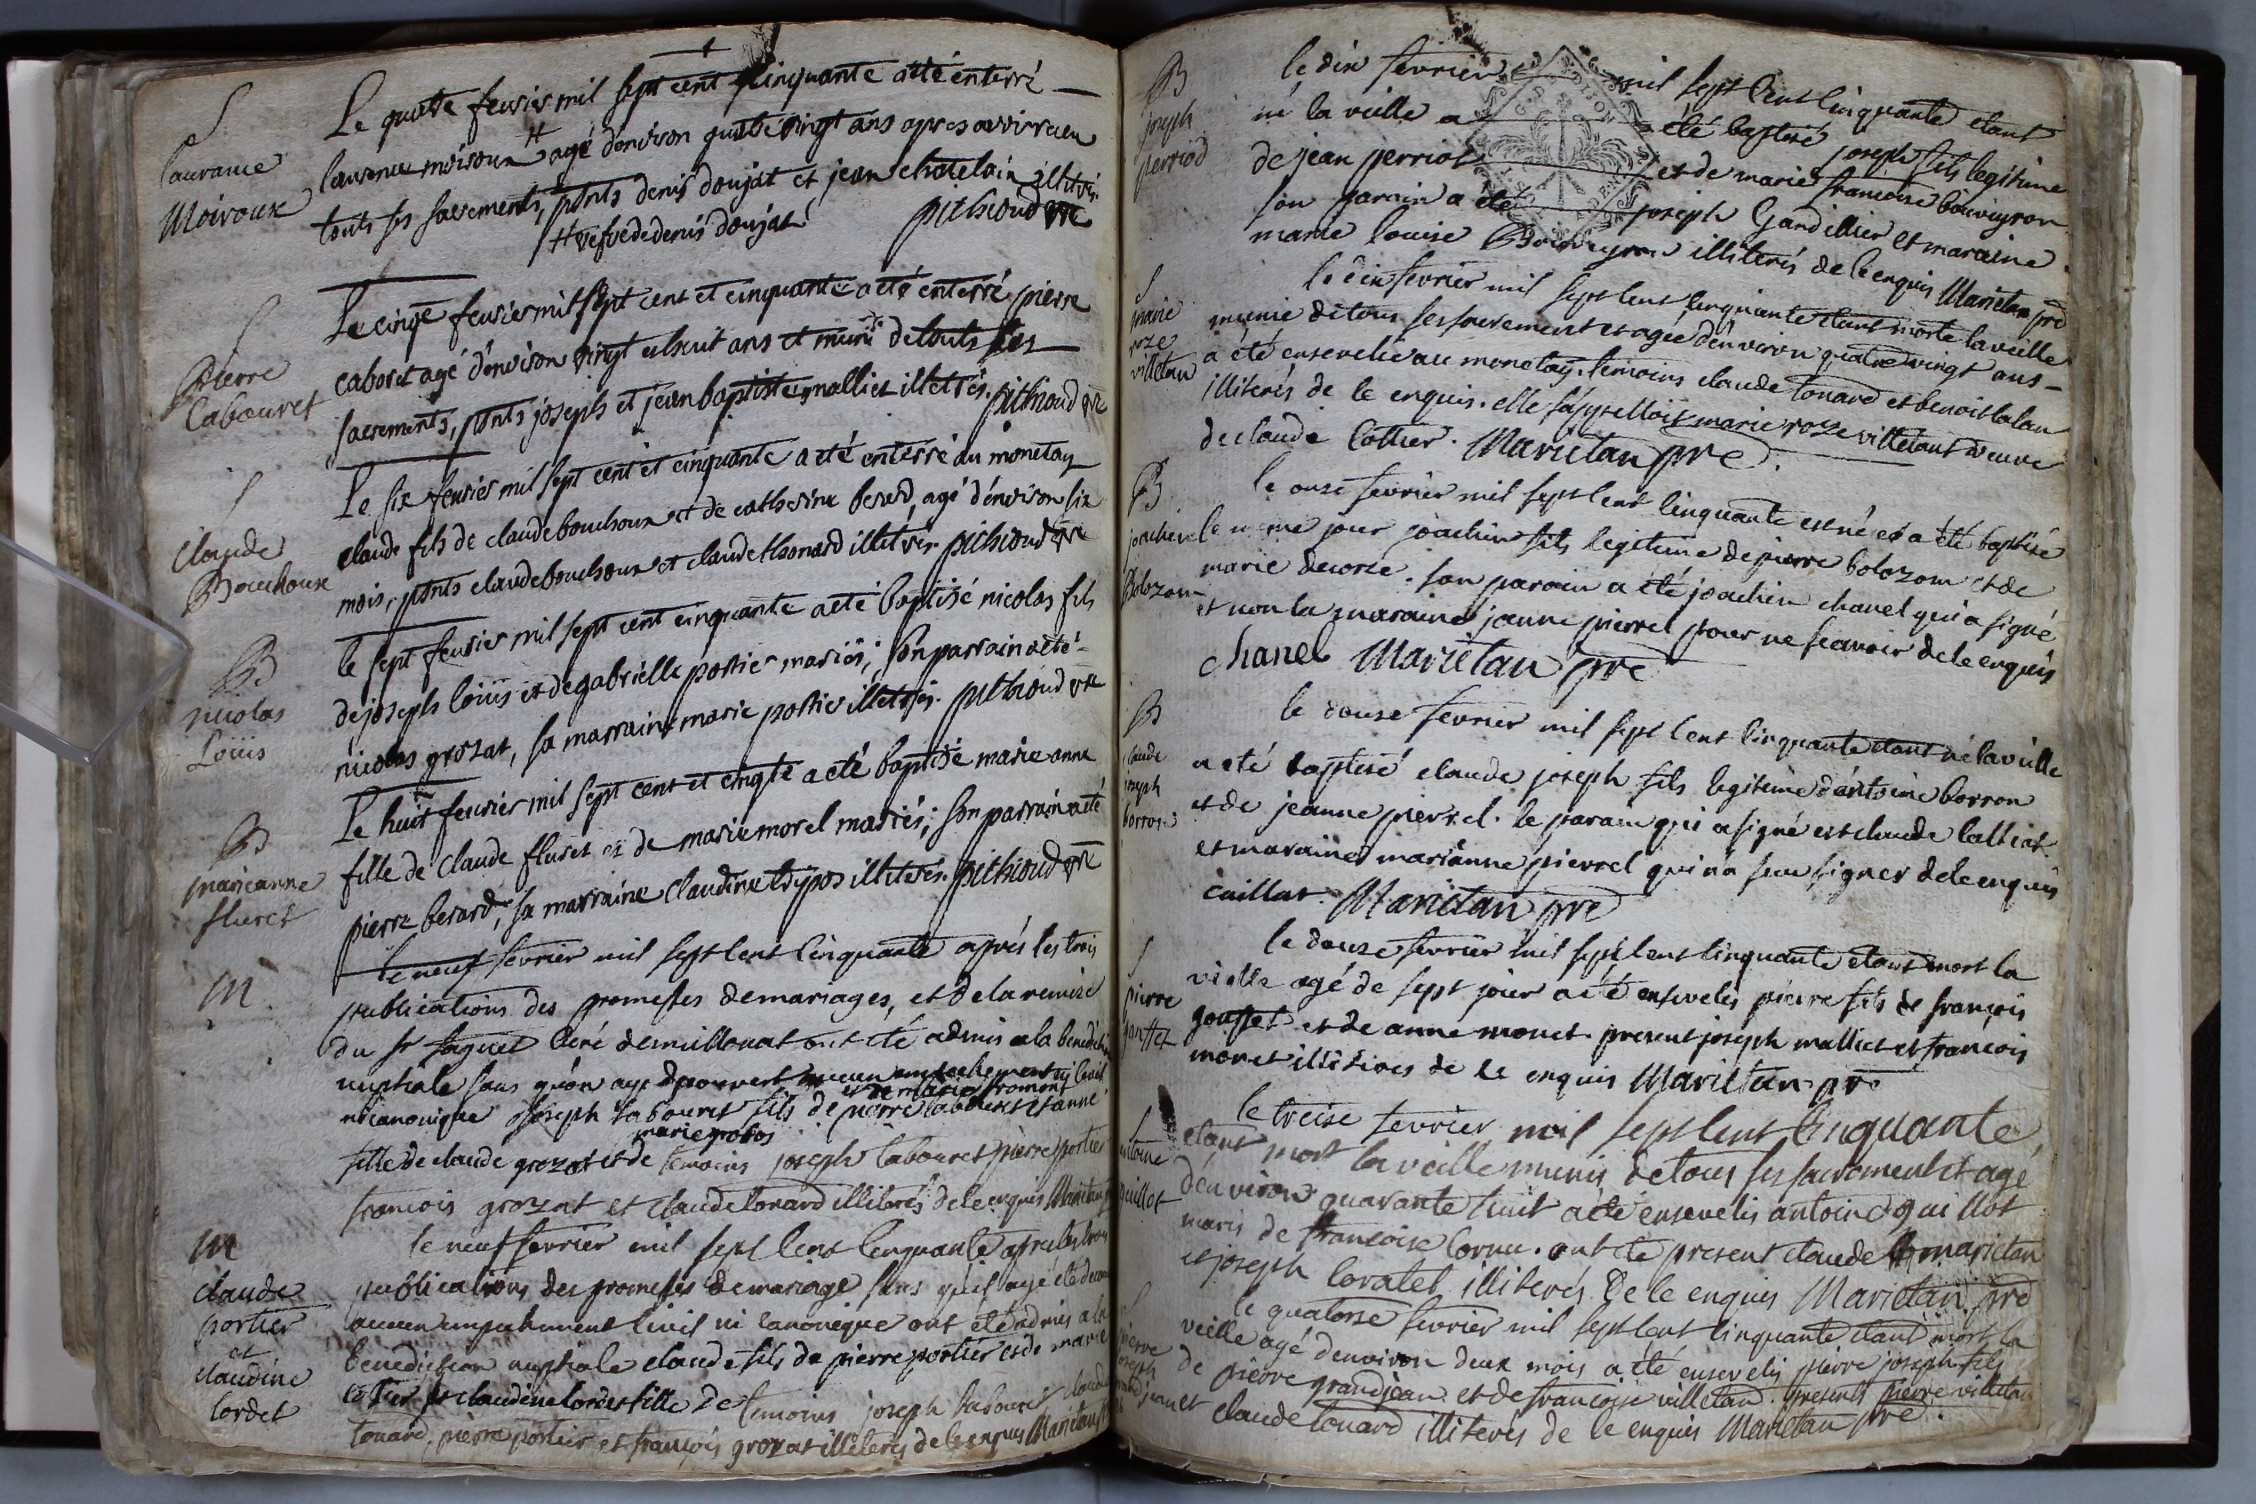 S
laurance
Moiroux
Le quatre feurier mil sept cent cinquante a eté enterré
laurence moiroux # agé d'environ quatre vingt ans apres avoir receu
touts ses sacements, pnts denis doujat et jean chatelain illitrés.
# vefve de denis doujat pithioud ptre
S
Pierre
Cabouret
Le cinqe feurier mil sept cent et cinquante a eté enterré pierre
caboret agé d'environ vingt et huit ans et muni de touts ses
sacrements, pnts joseph et jean baptiste malliet illetrés. pithioud ptre
S
Claude
Bouchoux
Le six feurier mil sept cent et cinquante a eté enterré au monetay
claude fils de claude bouchoux et de catherine berard, agé d'environ six
mois, pnts claude bouchoux et claude thonard illitrés. pithioud ptre
B
nicolas
Loüis
le sept feurier mil sept cent cinquante a eté baptisé nicolas fils
de joseph loüis et de gabrielle portier mariés; son parrain a eté
nicolas grozat, sa marraine marie portier illetrés. pithioud ptre
B
marieanne
fluret
Le huit feurier mil sept cent et cinqte a eté baptisé marie anne
fille de claude fluret et de marie morel mariés; son parrain a eté
pierre berard, sa marraine claudine typos illiterés. pithioud ptre
M
le neuf fevrier mil sept cent cinquante aprés les trois
publications des promesses de mariages, et de la remise
du sr faguet Curé de millonat ont eté admis a la benediction
nuptiale sans qu'on aye decouvert aucun empechement ni Civil
et de marie fromont
ni canonique joseph cabouret fils de pierre cabouret et anne
marie grobos
fille de claude grozat et de temoins joseph cabouret pierre portier
francois grozat et claude tonard illiterés de le enquis Marietan
M
claude
portier
et
claudine
cordet
le neuf fevrier mil sept cent cinquante aprés les trois
publications des promesses de mariage sans qu'il aye été
aucun empechement Civil ni canonique ont eté admis a la
benediction nuptiale claude fils de pierre portier et de marie
cottier et claudine cordet fille de temoins joseph cabouret claude
tonard, pierre portier et françois grozat illiterés de le enquis Marietan
B
joseph
perriod
le dix fevrier mil sept Cent Cinquante etant
né la veille a été baptisé joseph fils legitime
de jean perriot et de marie francoise bouveyron
son parain a été joseph Gandillier et maraine
marie louise Bouveyron illiterés de le enquis Marietan pre
S
marie
roze
villetan
le dix fevrier mil sept Cent Cinquante etant morte la veille
munie de tous ses sacrement et agée d'environ quatre vingt ans
a été ensevelie au monetay. temoins claude tonard et benoit lalan
illiterés de le enquis. elle s'appelloit marie roze villetant veuve
de claude Cottier. Marietan pre.
B
joachin
Bolozom
le onze fevrier mil sept Cent Cinquante est né et a été baptisé
le meme jour joachin fils legitime de pierre bolozom et de
marie decorse. son parain a été joachin chanel qui a signé
et non la maraine jeanne pierrel pour ne scavoir de le enquis
chanel Marietan pre
B
claude
joseph
borron
le douze fevrier mil sept Cent Cinquante etant né la veille
a eté baptisé claude joseph fils legitime d'antoine borron
et de jeanne pierrel. le parain qui a signé est claude
et maraine marianne pierrel qui n'a sceu signer de le enquis
caillat. Marietan pre
S
pierre
gouffet
le douze fevrier mil sept Cent Cinquante etant mort la
vielle agé de sept jour a eté ensevelis pierre fils de françois
gouffet et de anne monet present joseph malliet et françois
monet illiteres de le enquis Marietan pre
S
antoine
guillot
le treise fevrier mil sept Cent Cinquante
etant mort la veille munis de tous ses sacrement et agé
d'environ quarante huit a été ensevelis antoine guillot
maris de francoise Cornu. ont été present claude marietan
et joseph Coratel illiterés de le enquis Marietan pre
S
pierre
joseph
grandjeannet
le quatorse fevrier mil sept Cent Cinquante etant mort la
veille agé d'environ deux mois a été ensevelis pierre joseph fils
de pierre grandjean et de francoise villetan. presents pierre villetan
et claude tonard illiterés de le enquis Marietan pre.